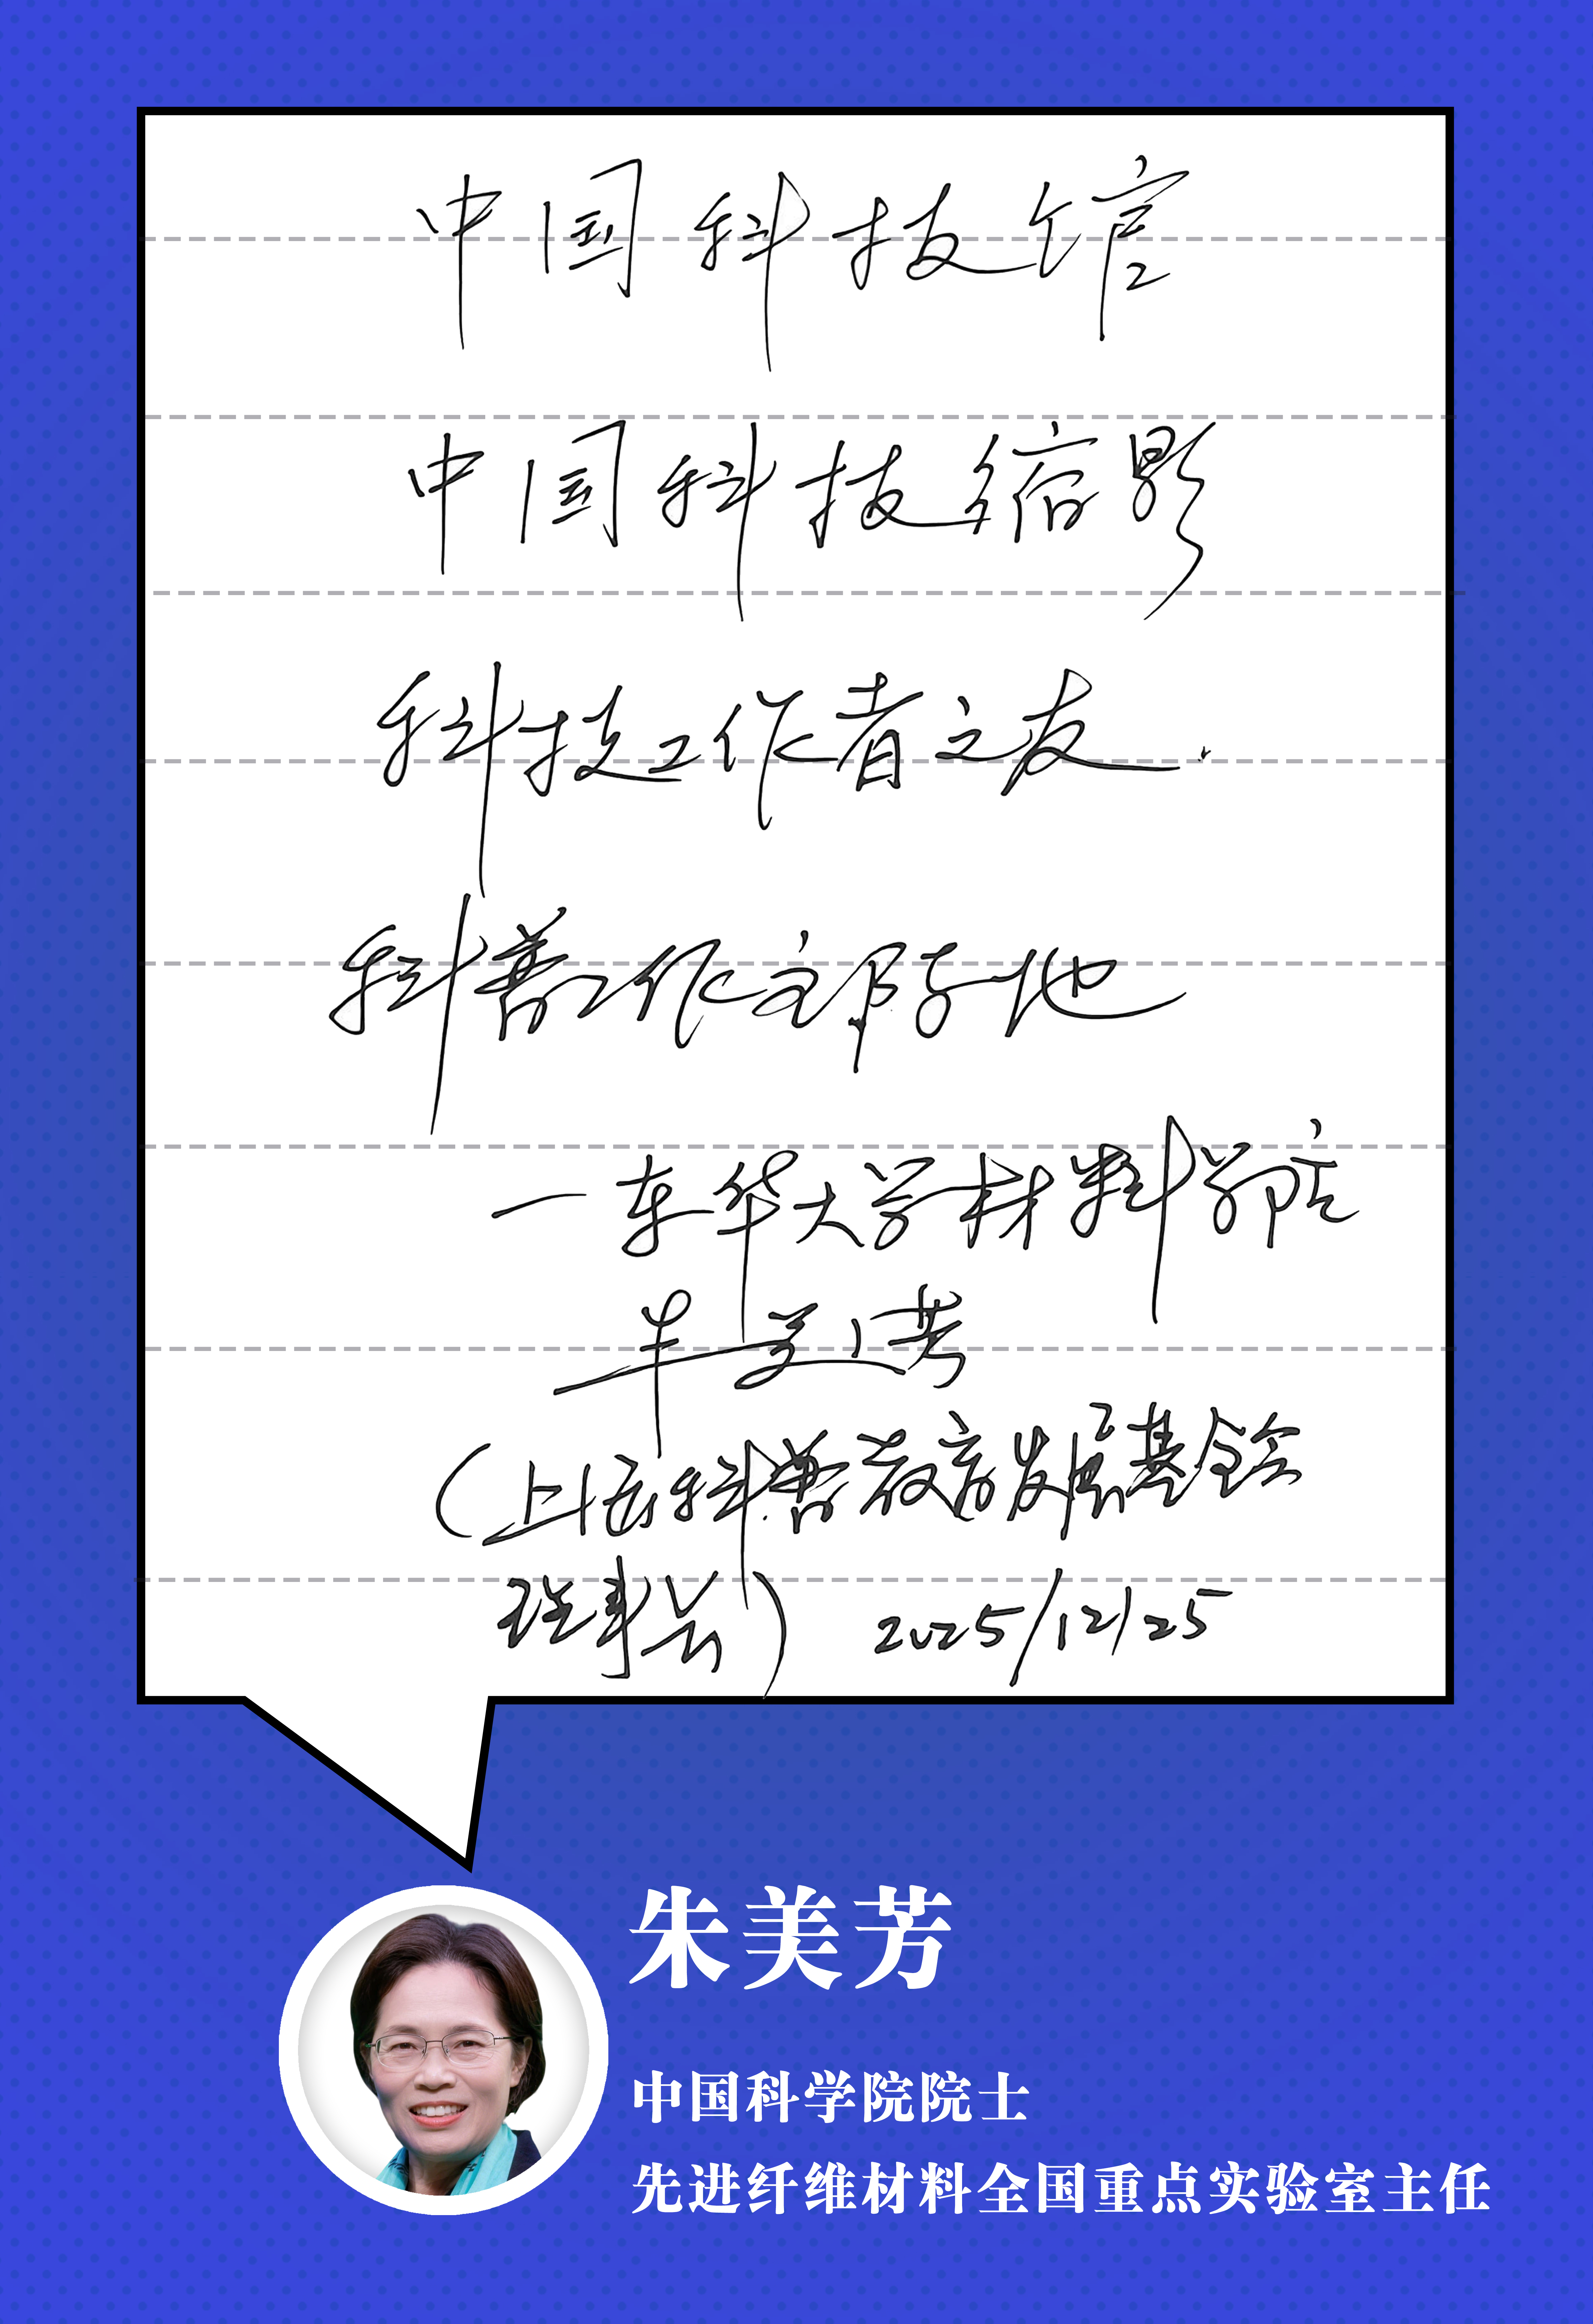 中国科技馆
中国科技缩影
科技工作者之友.
科普工作主阵地
—东华大学材料学院
朱美芳
(上海科普教育发展基金会
理事长) 2025/12/25
朱美芳
中国科学院院士
先进纤维材料全国重点实验室主任